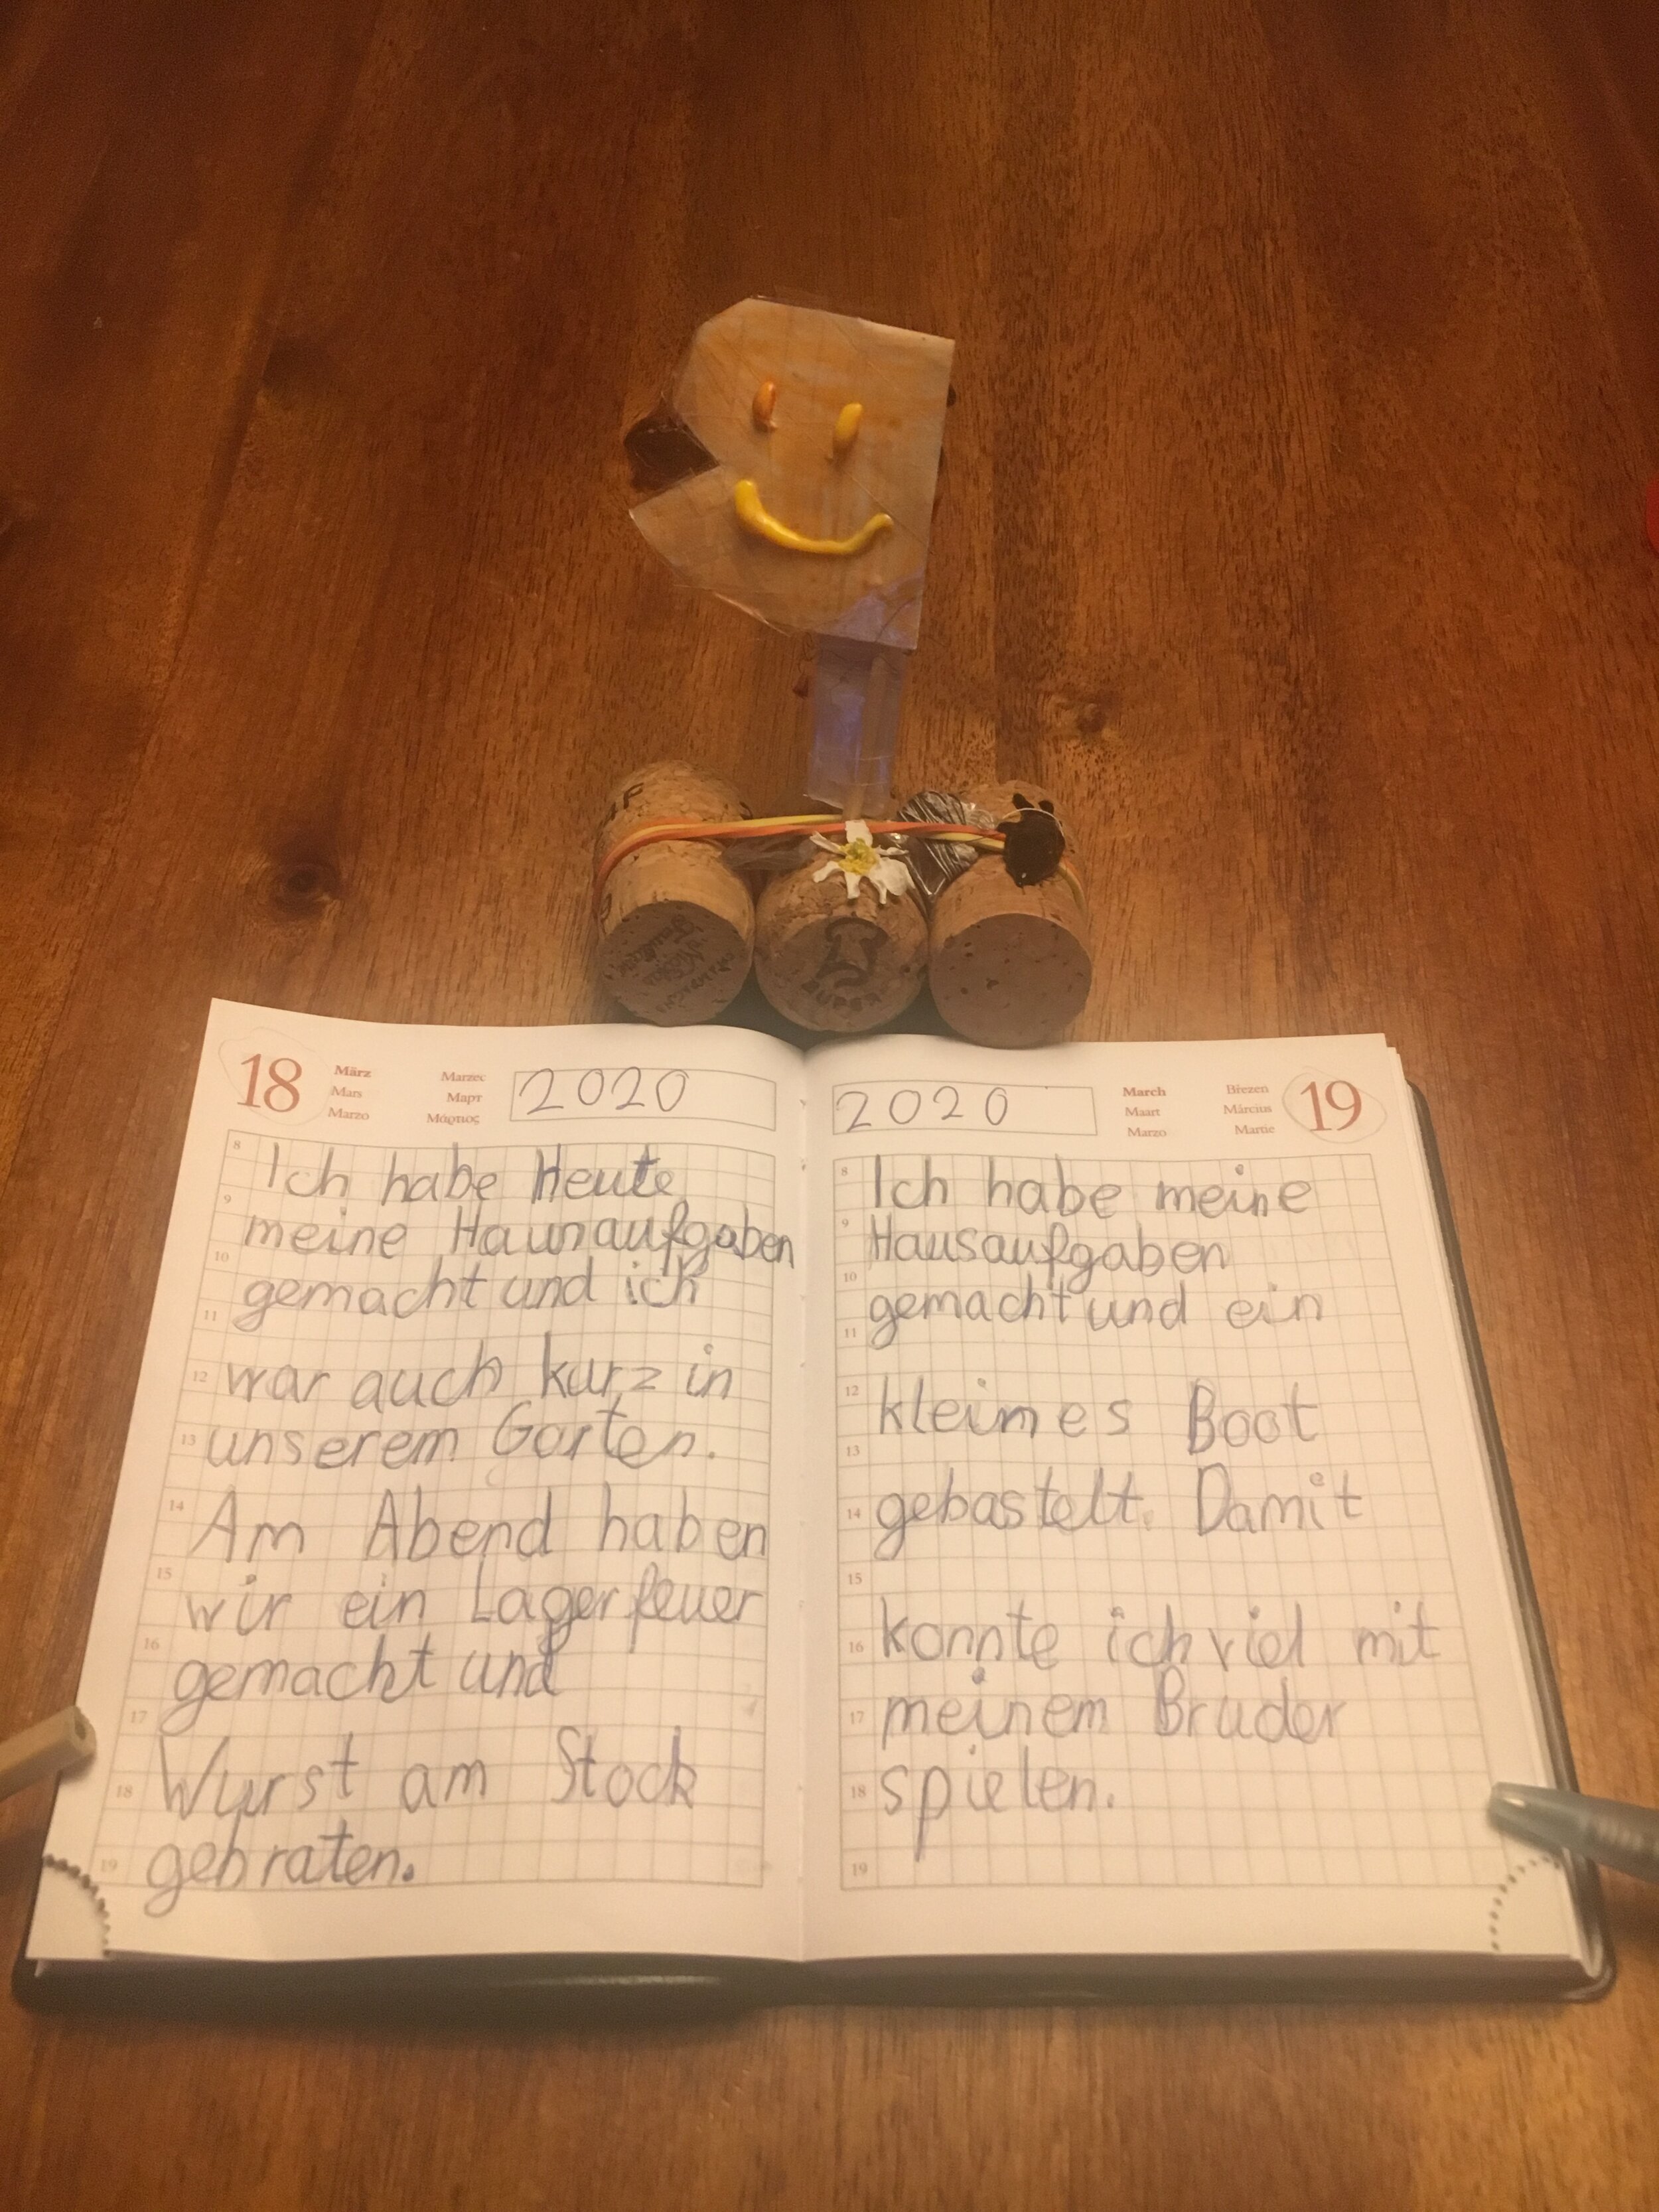 F
BUPSX
18
März
Mars
Marzo
Marzec
Март
Μάρτιος
2020
8
Ich habe Heute
9
meine Hausaufgaben
10
gemacht und ich
11
12
war auch kurz in
13
unserem Garten.
14
Am Abend haben
15
wir ein Lagerfeuer
16
gemacht und
17
18
Wurst am Stock
19
gebraten.
2020
March
Maart
Marzo
Březen
Március
Martie
19
8
Ich habe meine
9
Hausaufgaben
10
gemacht und ein
11
12
kleines Boot
13
14
gebastelt. Damit
15
16
konnte ich viel mit
17
meinem Bruder
18
spielen.
19